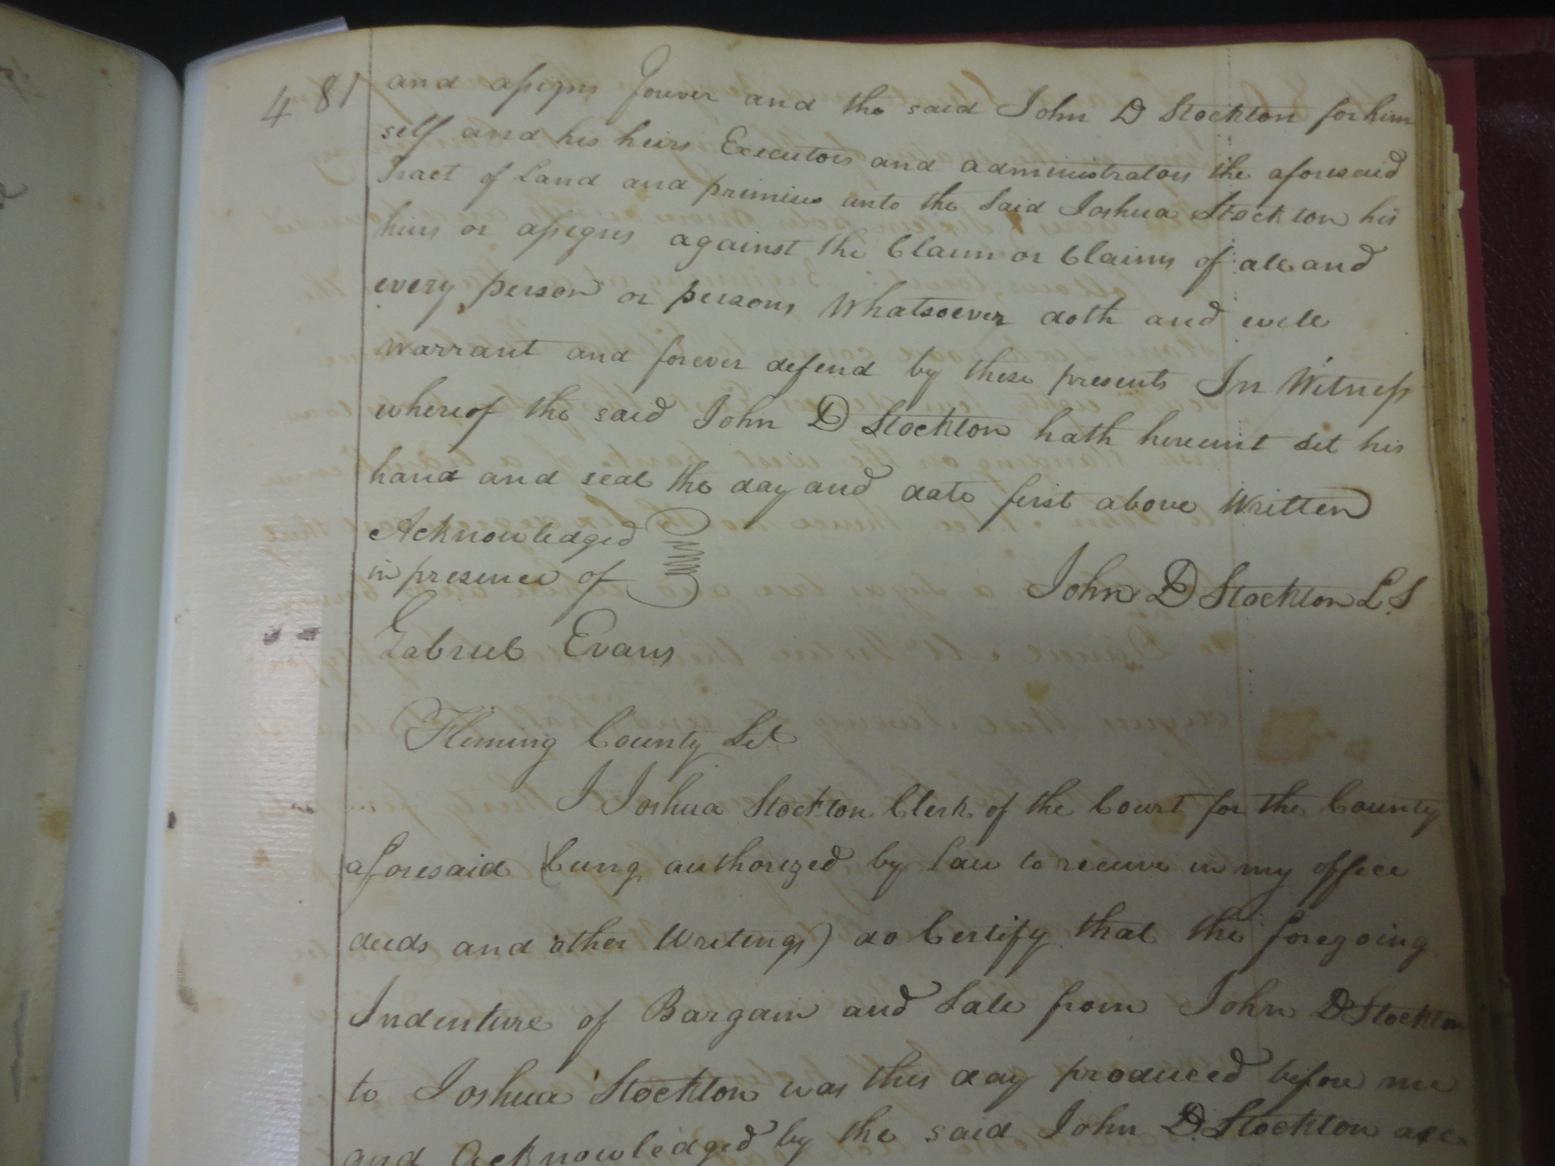 481
and assigns forever and the said John D Stockton for him
self and his heirs Executors and administrators the aforesaid
Tract of Land and premises unto the Said Joshua Stockton his
heirs or assigns against the Claim or Claims of all and
every person or persons Whatsoever doth and will
warrant and forever defend by these presents In Witness
whereof the said John D Stockton hath hereunt set his
hand and seal the day and date first above Written
Acknowledged
in presence of
John D Stockton L.S
Gabriel Evans
Fleming County Sct
I Joshua Stockton Clerk of the Court for the County
aforesaid (being authorized by law to receive in my office
deeds and other Writings) do Certify that the foregoing
Indenture of Bargain and Sale from John D Stockton
to Joshua Stockton was this day produced before me
and acknowledged by the said John D. Stockton